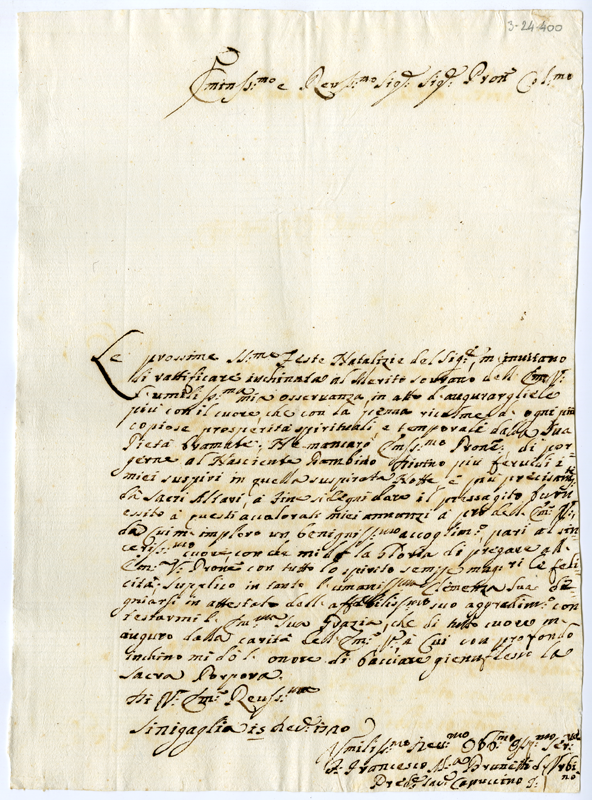 3-24-400
Eminss:mo e Reuss:mo Sig:r Sig:r Pron Col:mo
Le prossime SS:me Feste Natalizie del Sig:re m'inuitano
di ratificare inchinata al Merito sovrano dell' Em:a V:a
l' umiliss:ma mia osservanza, in atto d' augurargliele
più con il cuore che con la penna ricolme d' ogni più
copiose prosperità spirituali e temporali dalla Sua
Pietà bramate. Ne mancarò Emss:mo Prone, di por
gerne al Nasciente Bambino Divino più feruidi i
miei suspiri in quella suspirata Notte, e più precisam:te
da Sacri Altari, a fine si degni dare il presagito
essito a questi accalorati miei annunzi a prò dell' Em:a V:a
da cui ne imploro un benigniss:mo accoglim:to pari al sin
ceriss:mo cuore con che mi dò la Gloria di pregare all'
Em:a V:a Prone con tutto lo spirito sempre magri le feli
cità. Supplico in tanto l' umaniss:ma Clemenza Sua de
gniarsi in attestato dell' affabiliss:mo suo aggradim:to con
restarmi l' Em:ma Sua Grazia, che di tutto cuore m'
auguro dalla carità dell' Em:a V:a, a Cui con profondo
inchino mi dò l' onore di bacciare gienuflesso la
Sacra Porpora.
Di V:a Em:a Reuss:ma
Sinigaglia 15 Xbre 1770
Vmiliss:mo Deu:mo Obb:mo Osq:mo Ser:re
F. Francesco M:a Brunetti d' Vrbino
Pred:re Capuccino